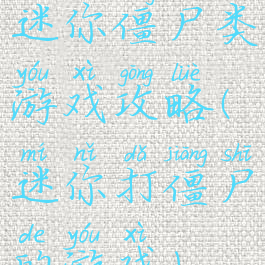 迷你僵尸类
yóu xì gōng lüè
游戏攻略(
mí nǐ dǎ jiāng shī
迷你打僵尸
de yóu xì
的游戏)